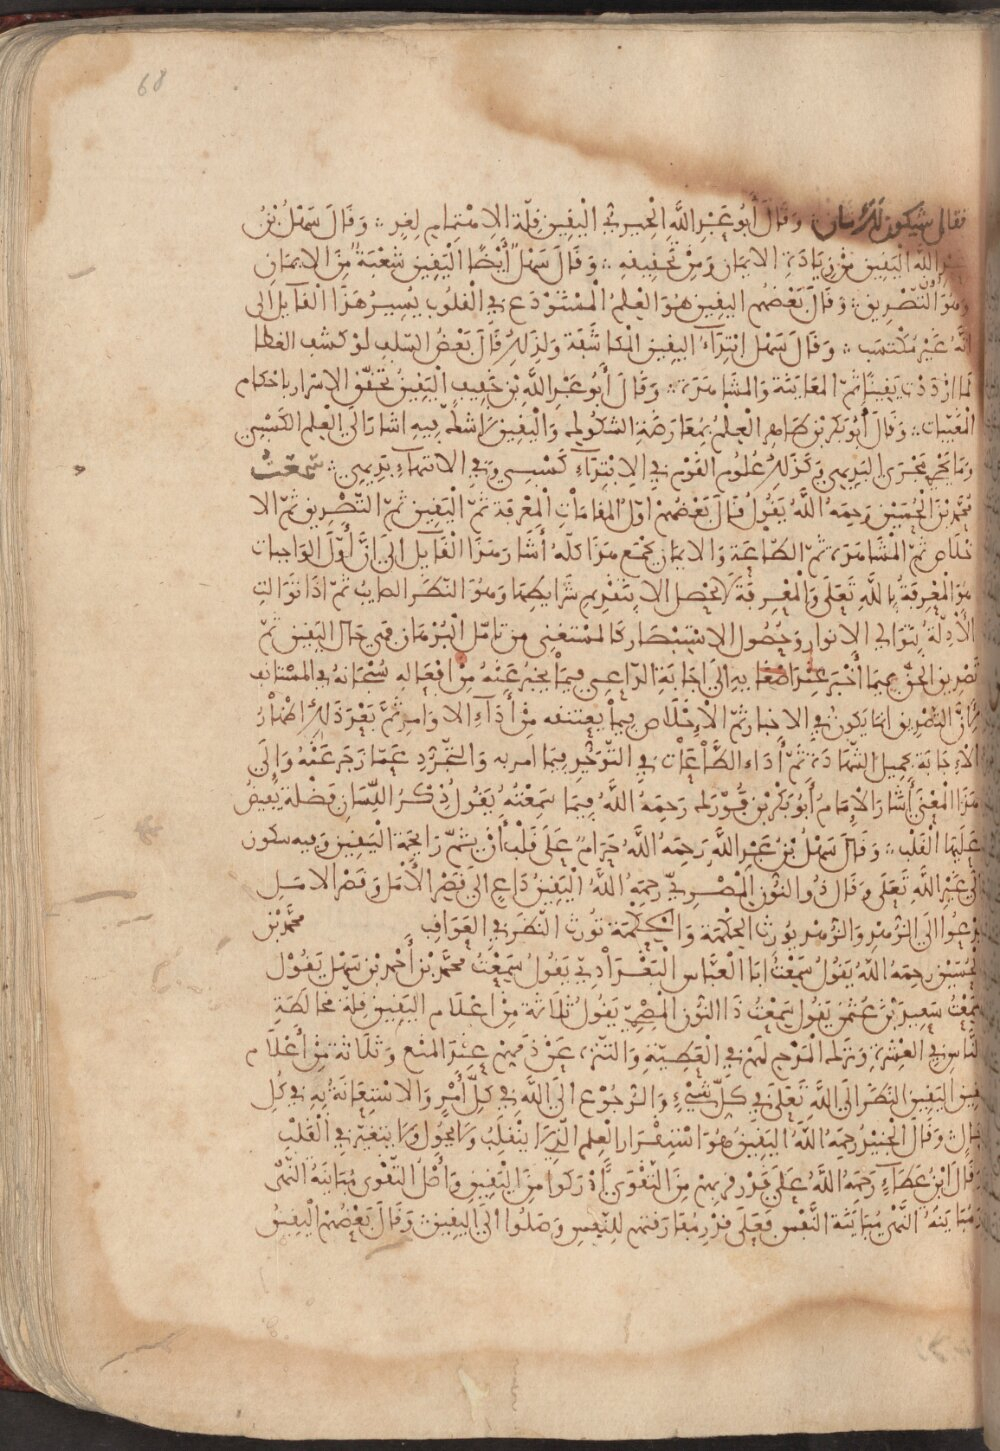 68
فقال سيكون لك شان وقال أبو عبد الله الحبر في اليقين قلة الاهتمام لغد ۞ وقال سهل بن
عبد الله اليقين من زيادة الايمان ومن تحقيقه ۞ وقال سهل أيضا اليقين شعبة من الايمان
وهو دون التصديق ۞ وقال بعضهم اليقين هو العلم المستودع في القلوب يشير هذا القايل الى
انه غير مكتسب ۞ وقال سهل ابتداء اليقين المكاشفة ولذلك قال بعض السلف لو كشف الغطا
لما ازددت يقينا ثم المعاينة والمشاهدة ۞ وقال أبو عبد الله بن خفيف اليقين تحقق الاسرار باحكام
المغيبات ۞ وقال أبو بكر بن طاهر العلم بمعارضة الشكوك واليقين لا شك فيه اشار الى العلم الكسبي
وما يجري مجرى البديهي وكذلك علوم القوم في الابتداء كسبي وفي الانتهاء بديهي ۞ سمعت
محمد بن الحسين رحمه الله يقول قال بعضهم اول المقامات المعرفة ثم اليقين ثم التصديق ثم الا
خلاص ثم المشاهدة ثم الطاعة والايمان يجمع هذا كله أشار هذا القايل الى ان أول الواجبات
هو المعرفة بالله تعلى والمعرفة لا تحصل الا بتقديم شرايطها وهو النظر الصايب ثم اذا توالت
الأدلة بتوالي الانوار وحصول الاستبصار كالمستغنى من تامل البرهان فهي حال اليقين ثم
تصديق الحق فيما أخبر عند اصغايه الى اجابة الداعي فيما يخبر عنه من افعاله سبحانه في المستانف
لأن التصديق انما يكون في الاخبار ثم الاخلاص فيما يعتنقه من أداء الاوامر ثم بعد ذلك اظهار
الاجابة بجميل الشهادة ثم أداء الطاعات في التوحيد فيما امر به والتجرد عما زجر عنه والى
هذا المعنى أشار الامام أبو بكر بن فورك رحمه الله فيما سمعته يقول ذكر اللسان فضلة يفيض
عليها القلب ۞ وقال سهل بن عبد الله رحمه الله حرام على قلب أن يشم رايحة اليقين وفيه سكون
الى غير الله تعلى وقال ذو النون المصري رحمه الله اليقين داع الى قصر الأمل وقصر الامل
يدعوا الى الزهد والزهد يورث الحكمة والحكمة تورث النظر في العواقب محمد بن
الحسين رحمه الله يقول سمعت ابا العباس البغدادي يقول سمعت محمد بن أحمد بن سهل يقول
سمعت سعيد بن عثمن يقول سمعت ذا النون المصري يقول ثلاثة من اعلام اليقين قلة مخالطة
الناس في العشرة وترك المدح لهم في العطية والتنزه عن ذمهم عند المنع وثلاثة من أعلام
يقين اليقين النظر الى الله تعلى في كل شيء والرجوع الى الله في كل أمر والاستعانة به في كل
حال وقال الجنيد رحمه الله اليقين هو استقرار العلم الذي لا ينقلب ولا يحول ولا يتغير في القلب
وقال ابن عطاء رحمه الله على قدر قربهم من التقوى أدركوا من اليقين وأصل التقوى مباينة النهي
ومباينة النهي مباينة النفس فعلى قدر مفارقتهم للنفس وصلوا الى اليقين ۞ وقال بعضهم اليقين